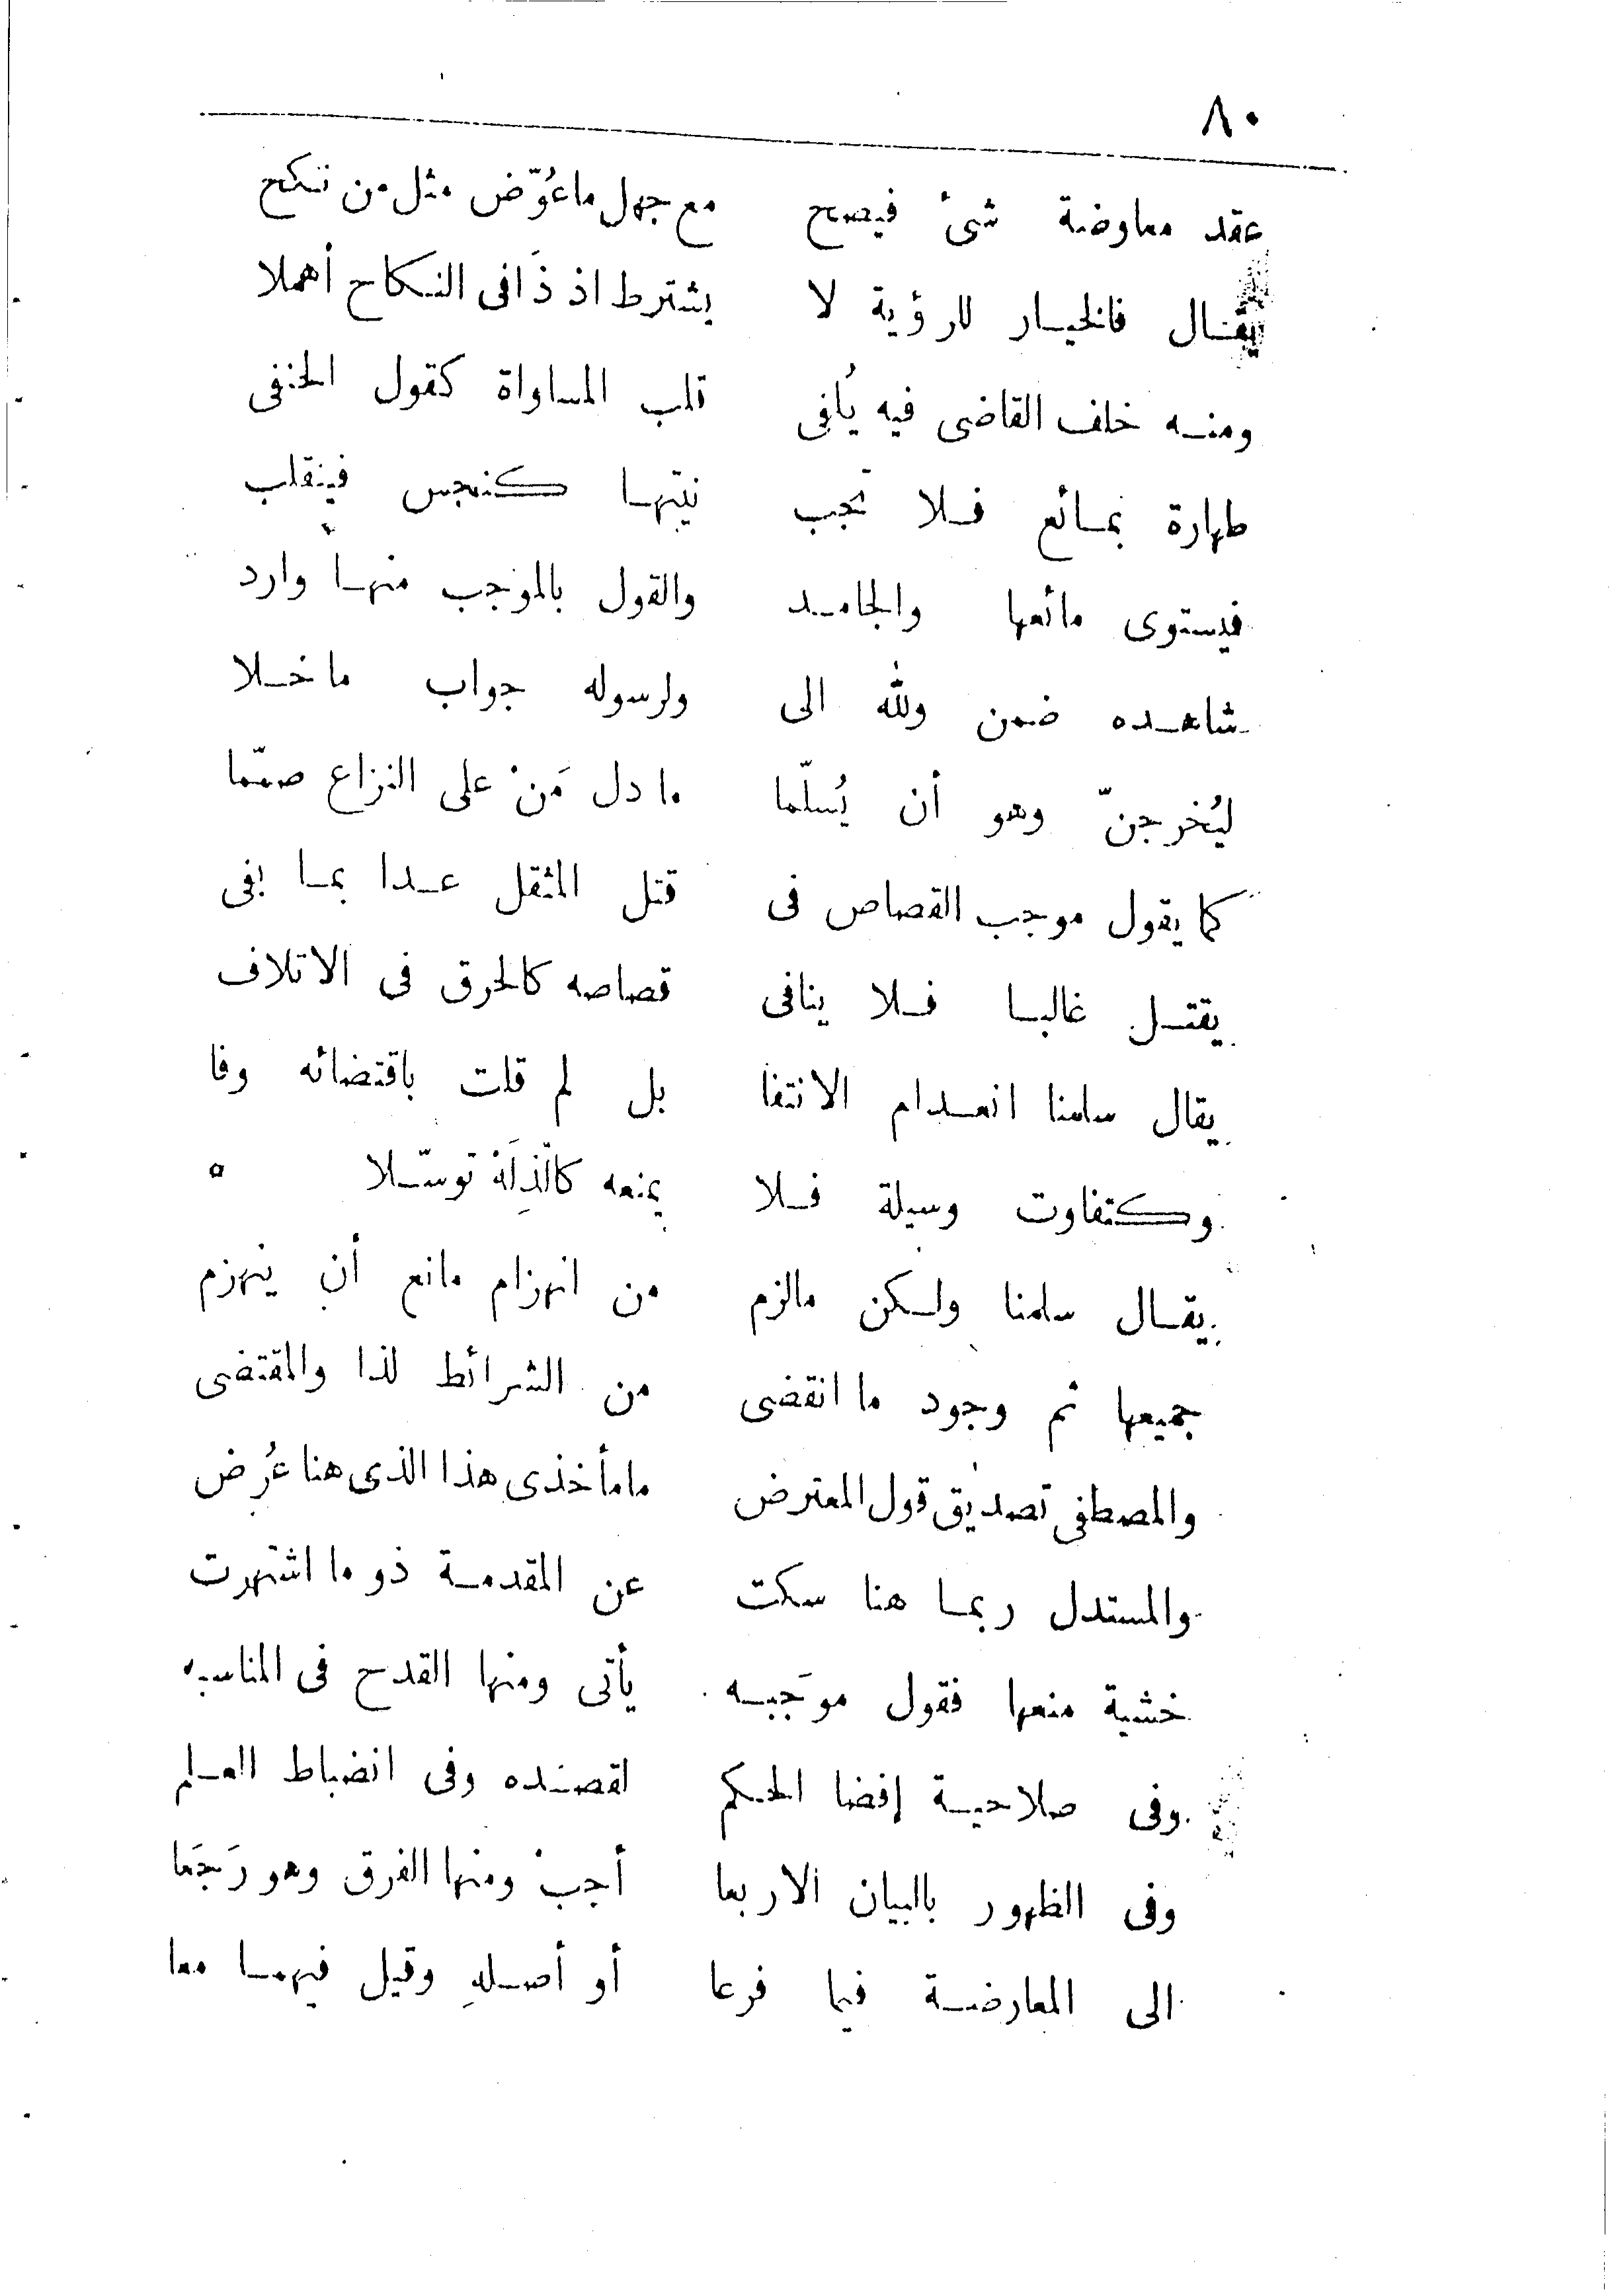 ٨٠
عقد معاوضة شئ فيصح مع جهل ما عُوّض مثل من نكح
يقال فالخيار للرؤية لا يشترط اذ ذَا فى النكاح أهملا
ومنه خلف القاضى فيه يُافى قلب المساواة كقول الحنفى
طهارة بمائع فلا تجب نيتها كنجس فينقلب
فيستوى مائعها والجامد والقول بالموجب منها وارد
شاهده ضمن ولله الى ولرسوله جواب ما خلا
ليُخرجنّ وهو أن يُسلّما ما دل مَنْ على النزاع صمّما
كما يقول موجب القصاص فى قتل المثقل عمدا بما يفى
يقتل غالبا فلا ينافى قصاصه كالحرق فى الاتلاف
يقال سلمنا انعدام الانتفا بل لم قلت باقتضائه وفا
وكتفاوت وسيلة فلا يمنعه كالّذِلَهْ توسّلا
يقال سلمنا ولكن مالزم من انهزام مانع أن ينهزم
جميعها ثم وجود ما انقضى من الشرائط لذا والمقتضى
والمصطفى تصديق قول المعترض ما مأخذى هذا الذى هنا عُرِض
والمستدل ربما هنا سكت عن المقدمة ذو ما اشتهرت
خشية منعها فقول موجَبه يأتى ومنها القدح فى المناسبه
وفى صلاحية إفضا الحكم لقصده وفى انضباط العلم
وفى الظهور بالبيان الاربعا أجبْ ومنها الفرق وهو رَجَعا
الى المعارضة فيما فرعا أو أصلهِ وقيل فيهما معا